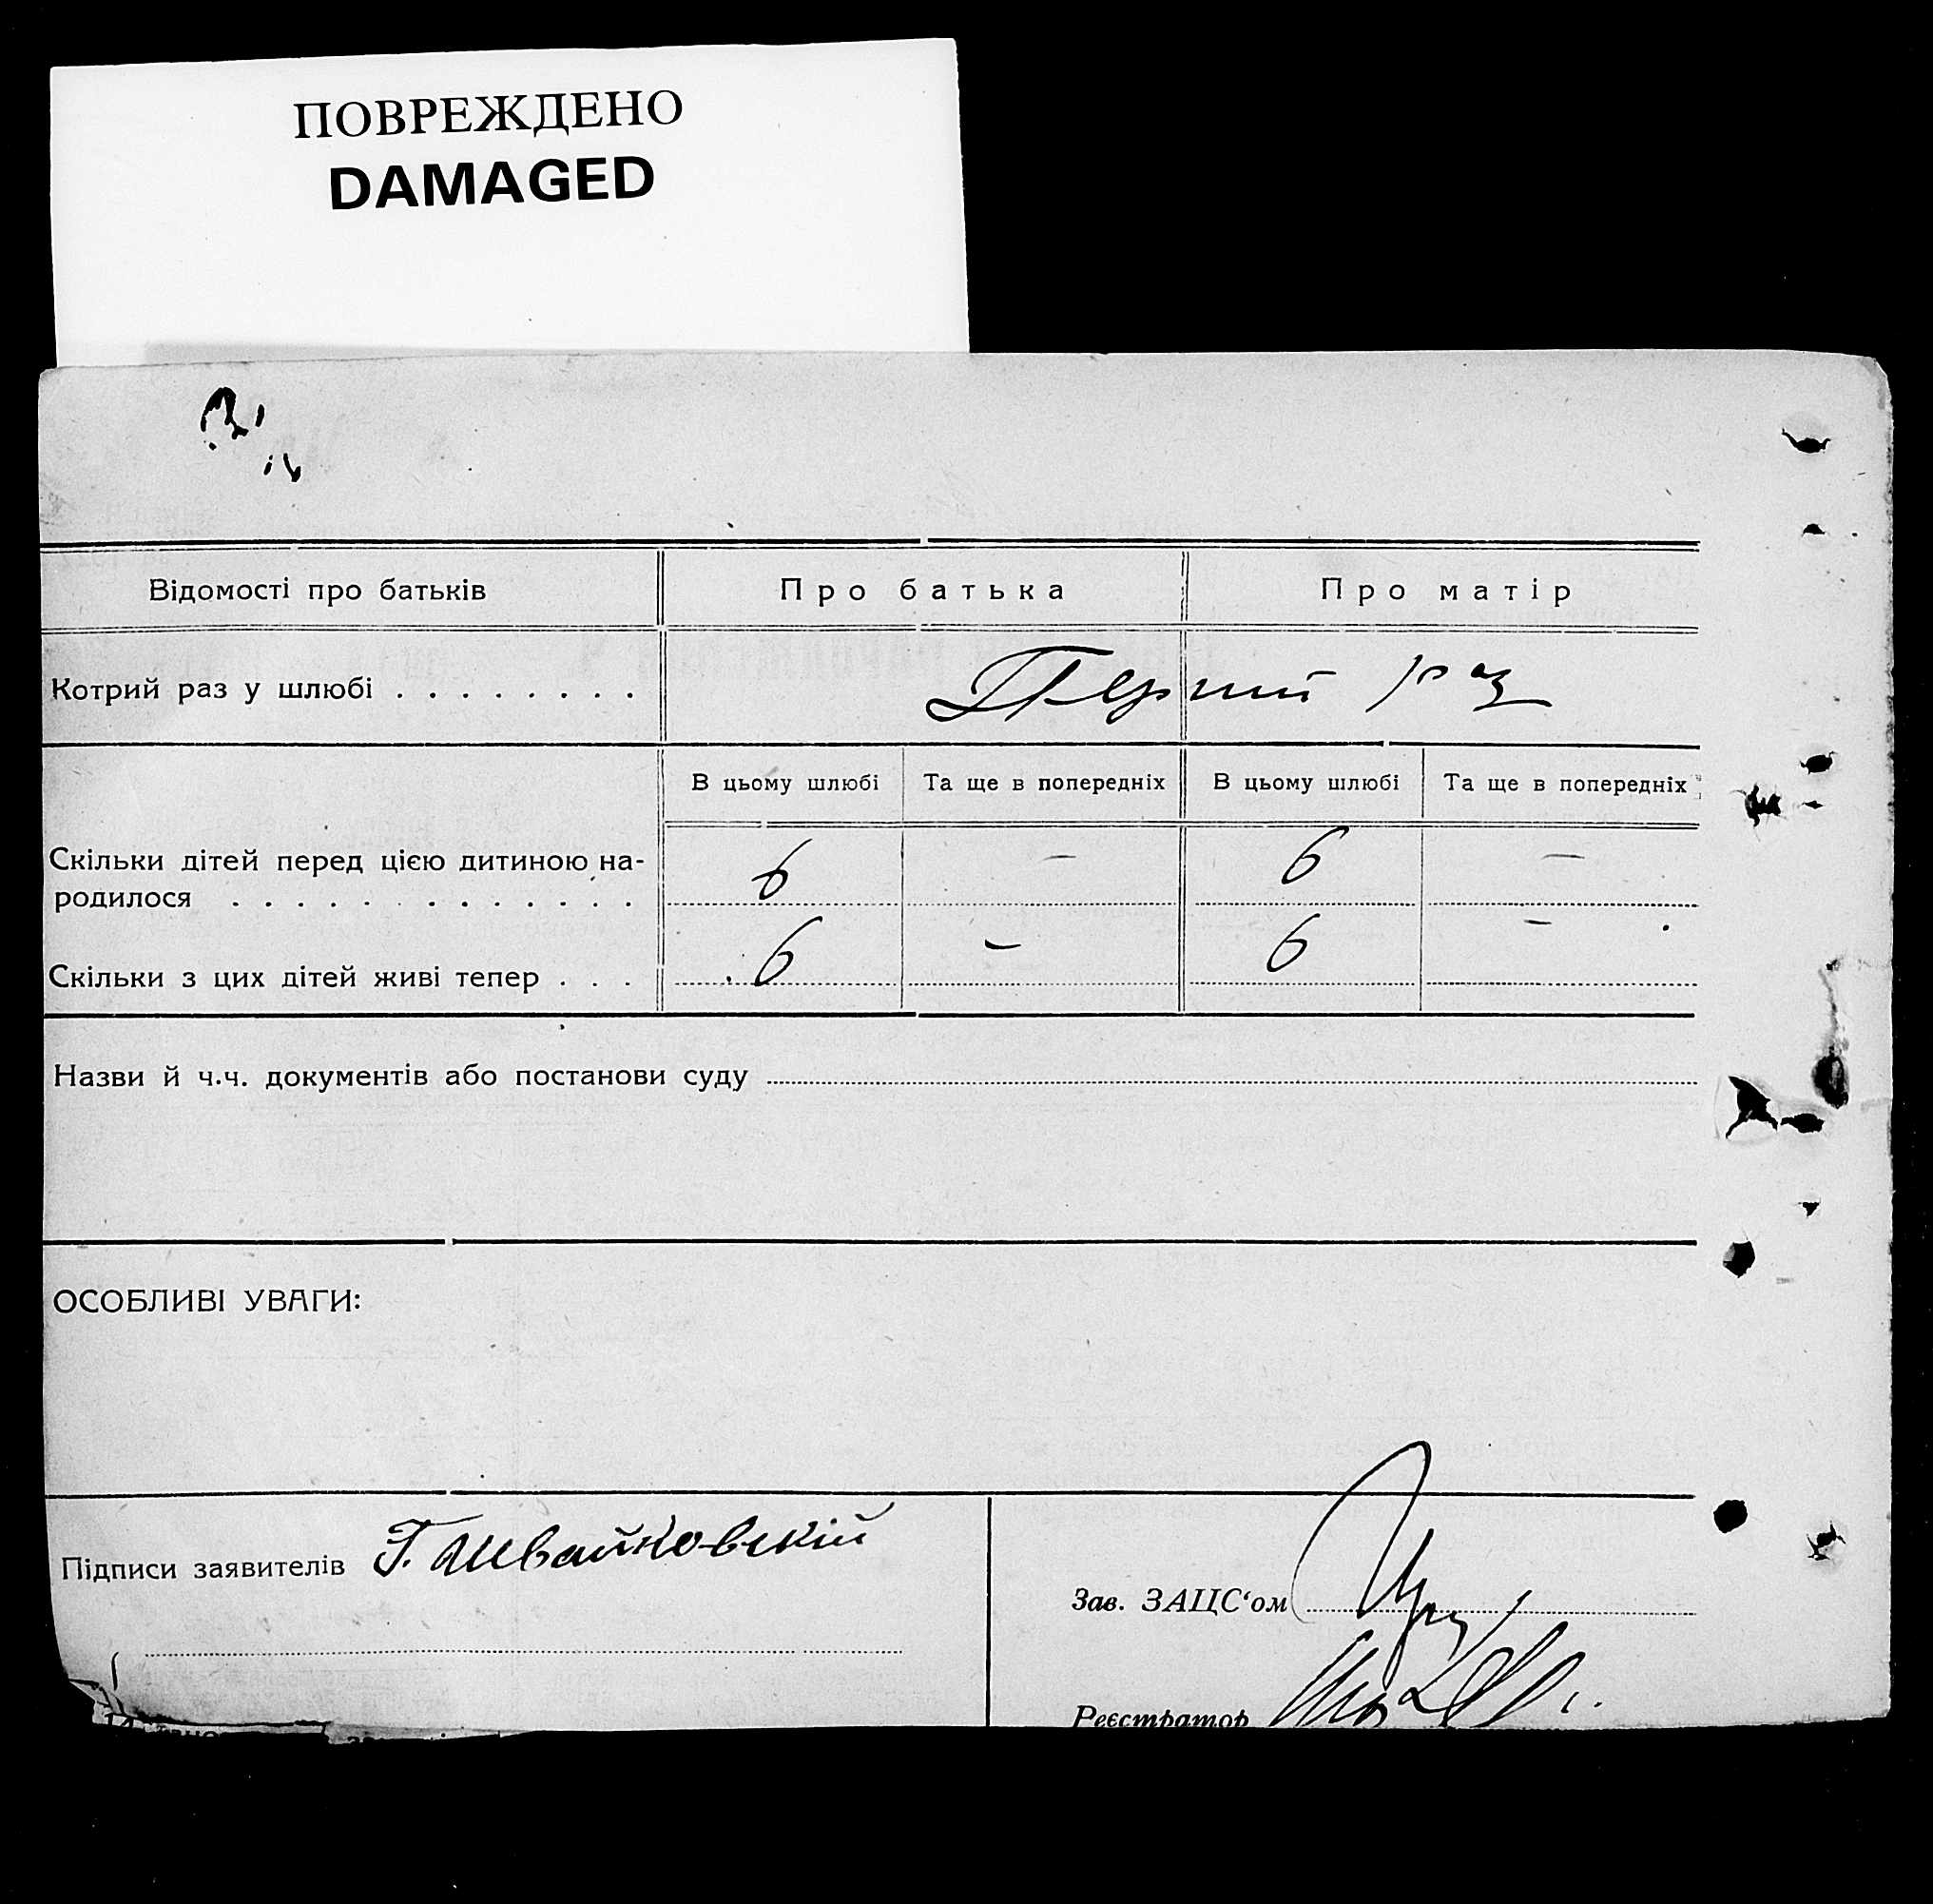 ПОВРЕЖДЕНО
DAMAGED
Відомості про батьків Про батька Про матір
Котрий раз у шлюбі . . . . . . . . Перший раз
В цьому шлюбі Та ще в попередніх В цьому шлюбі Та ще в попередніх
Скільки дітей перед цією дитиною на-
родилося . . . . . . . . . . . . . 6 — 6 —
Скільки з цих дітей живі тепер . . . 6 — 6 —
Назви й ч.ч. документів або постанови суду
ОСОБЛИВІ УВАГИ:
Підписи заявителів Г. Швайковскій
Зав. ЗАЦС‘ом
Реєстратор